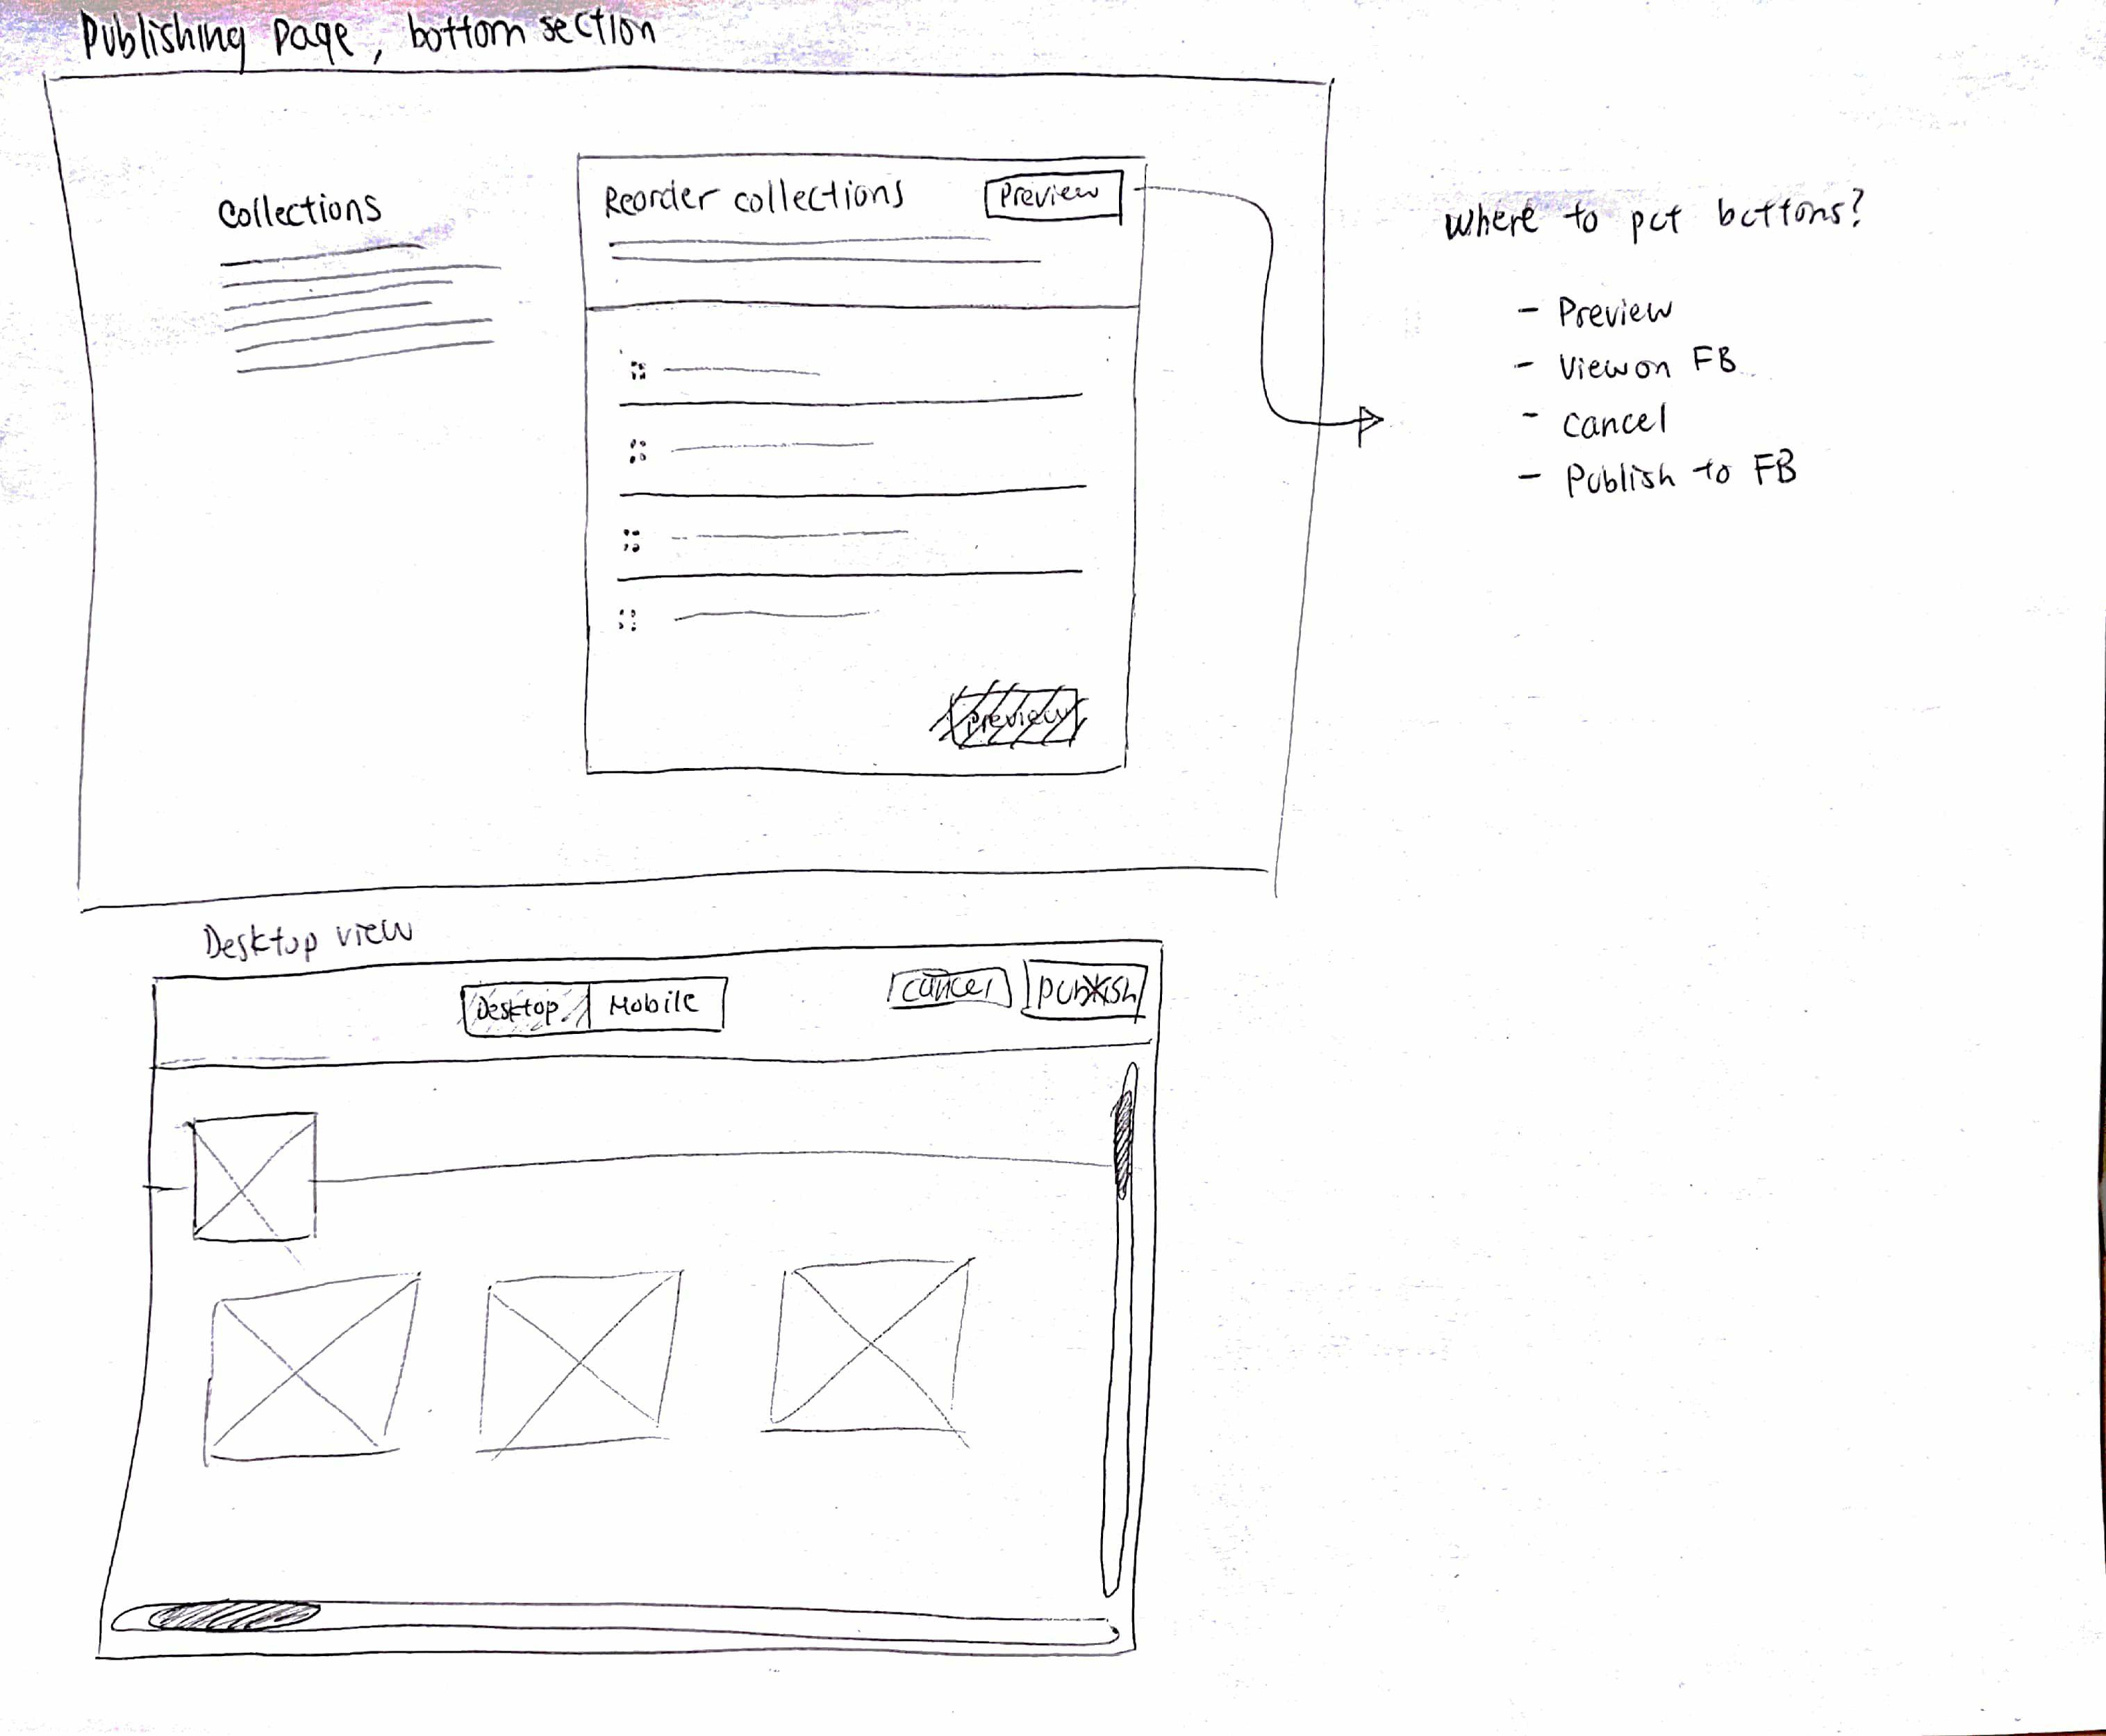 Publishing Page, bottom section
Collections
Reorder collections
Preview
Where to put buttons?
- Preview
- View on FB
- cancel
- Publish to FB
Preview
Desktop view
Desktop
Mobile
cancel
publish